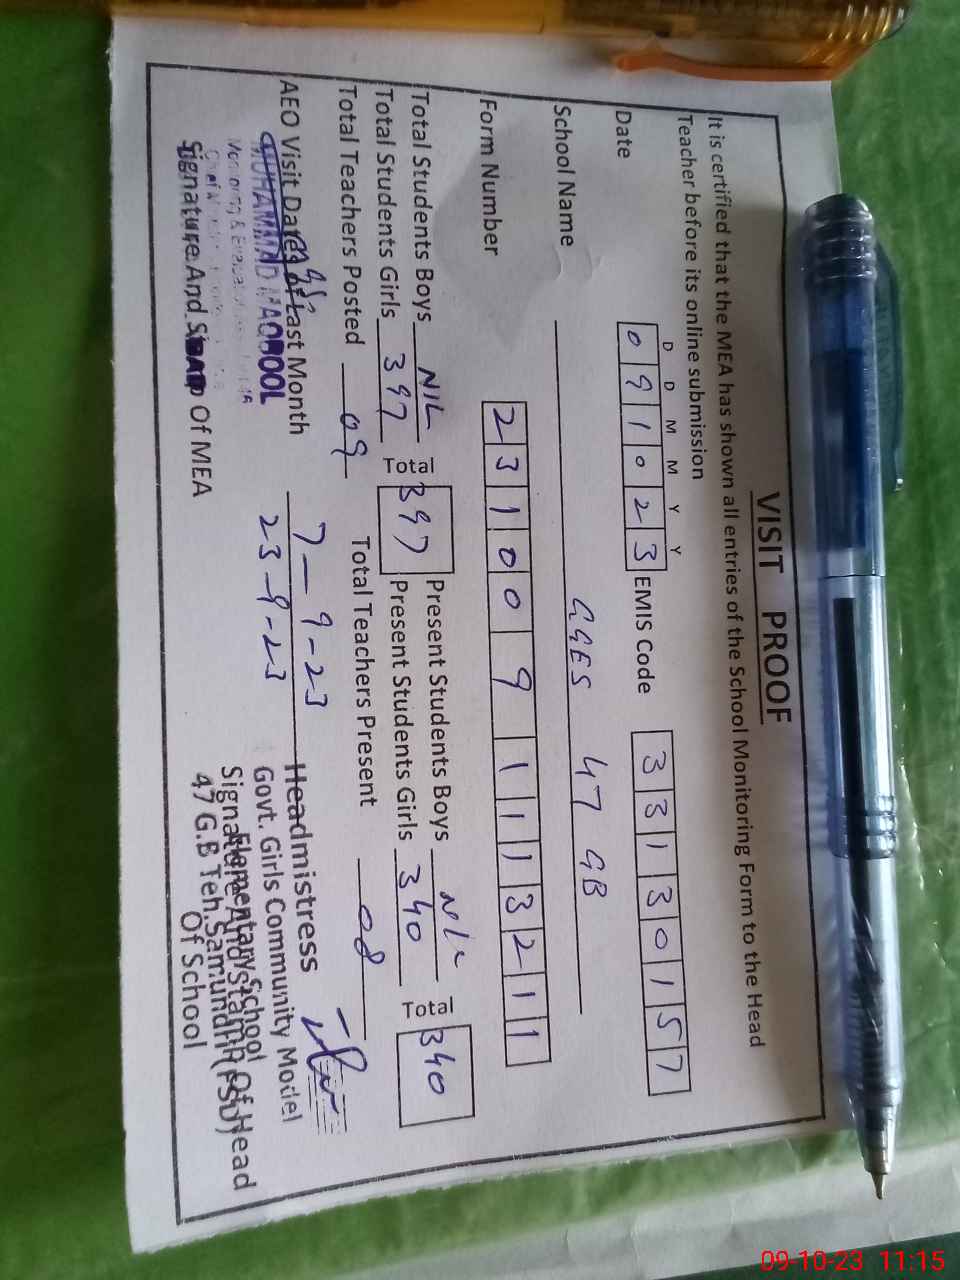 VISIT PROOF
It is certified that the MEA has shown all entries of the School Monitoring Form to the Head
Teacher before its online submission
D D M M Y Y
Date 0 9 1 0 2 3 EMIS Code 3 3 1 3 0 1 5 7
School Name GGES 47 GB
Form Number 2 3 1 0 0 9 1 1 1 3 2 1 1
Total Students Boys NIL Total 397 Present Students Boys NIL Total 340
Total Students Girls 397 Present Students Girls 340
Total Teachers Posted 09 Total Teachers Present 08
AEO Visit Dates of Last Month 7-9-23
23-9-23
MUHAMMAD MAQBOOL
Monitoring &
Signature And Stamp Of MEA
Headmistress
Govt. Girls Community Model
Elementary School
47 G.B Teh. Samundri (FSD)
Signature And Stamp Of Head
Of School
09-10-23 11:15